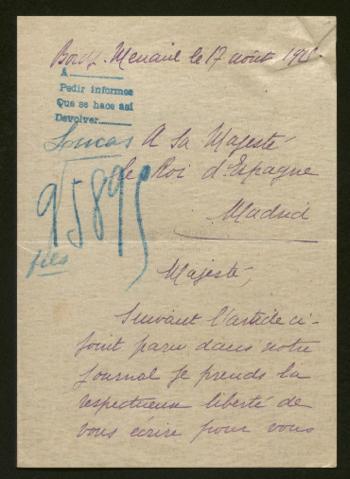 Menail le 17 août
A
Pedir informes
Que se hace así
Devolver
A Sa Majesté
le Roi d'Espagne
Madrid
95895
fils
Majesté,
Suivant l'article ci-
joint paru dans notre
journal je prends la
respectueuse liberté de
vous écrire pour vous